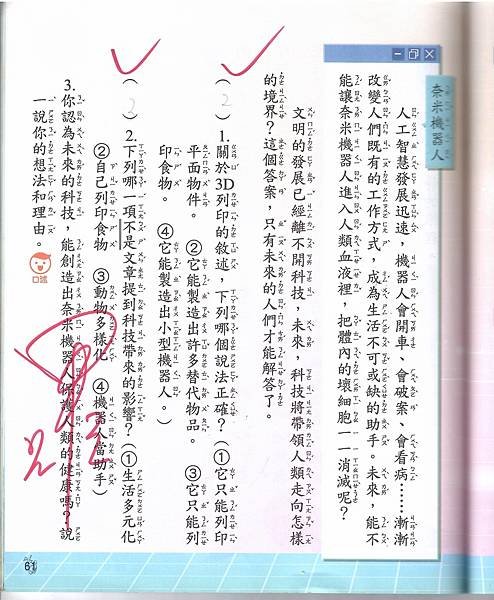 奈米機器人
人工智慧發展迅速，機器人會開車、會破案、會看病……漸漸
改變人們既有的工作方式，成為生活不可或缺的助手。未來，能不
能讓奈米機器人進入人類血液裡，把體內的壞細胞一一消滅呢？
文明的發展已經離不開科技，未來，科技將帶領人類走向怎樣
的境界？這個答案，只有未來的人們才能解答了。
（2）1.關於3D列印的敘述，下列哪個說法正確？（①它只能列印
平面物件。 ②它能製造出許多替代物品。 ③它只能列
印食物。 ④它能製造出小型機器人。）
（3）2.下列哪一項不是文章提到科技帶來的影響？（①生活多元化
②自己列印食物 ③動物多樣化 ④機器人當助手）
3.你認為未來的科技，能創造出奈米機器人保護人類的健康嗎？說
一說你的想法和理由。
口述
61